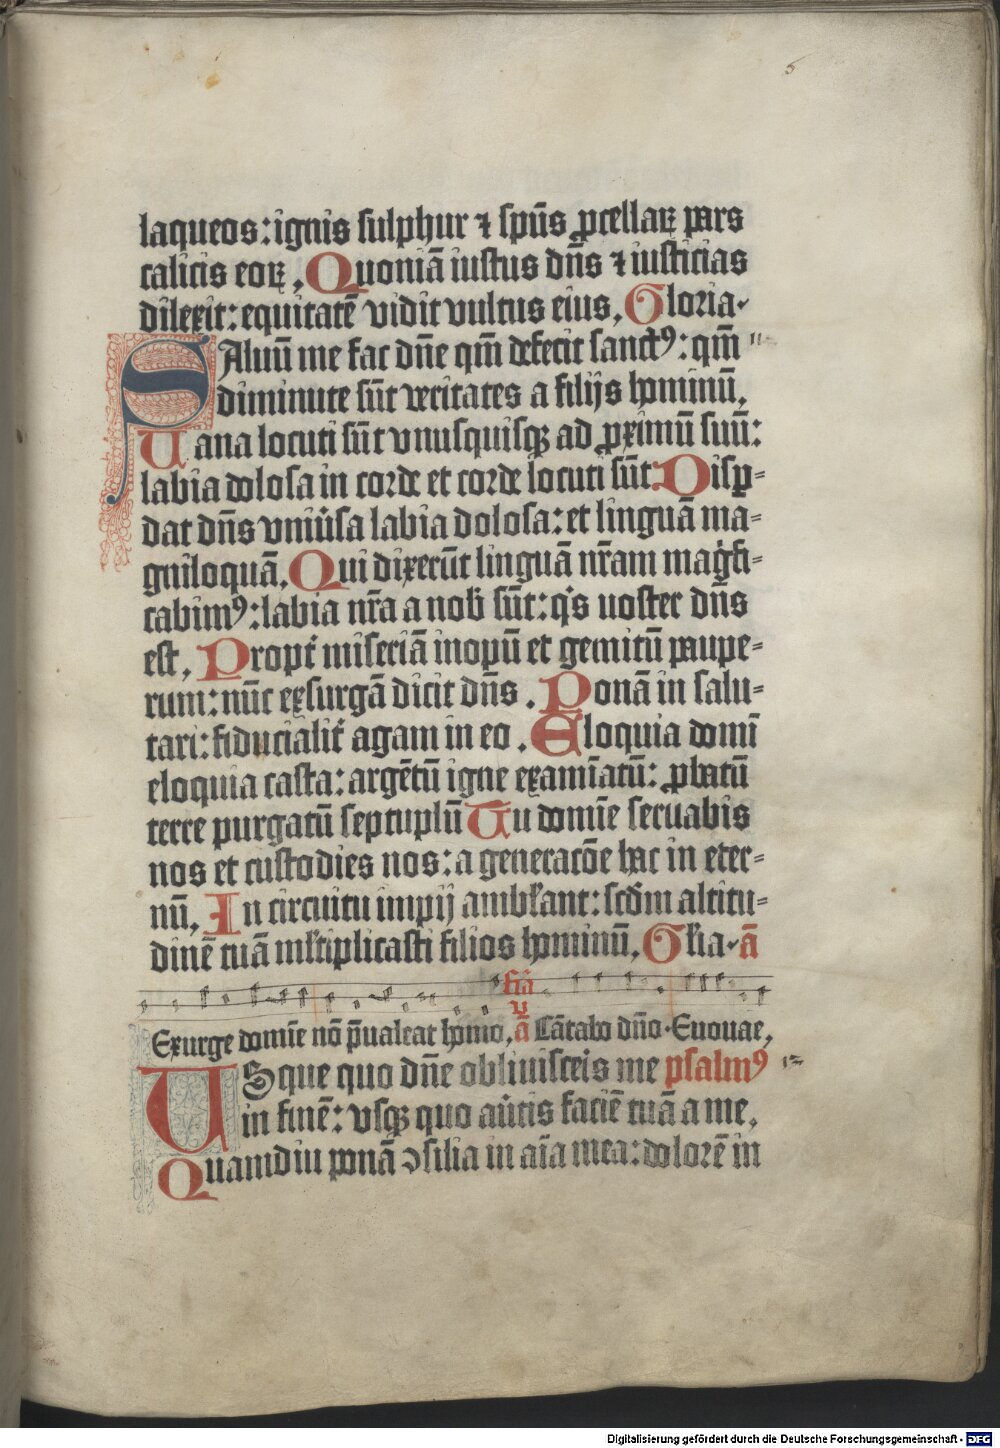 5
laqueos: ignis sulphur ⁊ spūs ꝓcellaꝝ pars
calicis eoꝝ, Quoniā iustus dn̄s ⁊ iusticias
dilexit: equitatē vidit vultus eius, Gloria
Saluū me fac dn̄e qm̄ defecit sanctꝰ: qm̄
diminute sūt veritates a filijs hominū,
Uana locuti sūt vnusquisqꝫ ad ꝓximū suū:
labia dolosa in corde et corde locuti sūt Disꝑ=
dat dn̄s vniūsa labia dolosa: et linguā ma=
gniloquā, Qui dixerūt linguā nr̄am magi̇fi=
cabimꝰ: labia nr̄a a nob̄ sūt: qͥs noster dn̄s
est, Propt̄ miseriā inopū et gemitū paupe=
rum: nūc exsurgā dicit dn̄s. Ponā in salu=
tari: fiducialit̄ agam in eo. Eloquia domī
eloquia casta: argētū igne examīatū: ꝓbatū
terre purgatū septuplū Tu domīe seruabis
nos et custodies nos: a generacōe hac in eter=
nū, In circuitu impij ambl̄ant: scd̄m altitu=
dinē tuā ml̄tiplicasti filios hominū, Gl̄ia ā
fia
v
Exurge domīe nō p̄ualeat homo, ā Cātabo dn̄o. Euouae,
USque quo dn̄e obliuisceis me psalmꝰ
in finē: vsqꝫ quo aūtis faciē tuā a me,
Quamdiu ponā ↄsilia in aīa mea: dolorē in
Digitalisierung gefördert durch die Deutsche Forschungsgemeinschaft - DFG